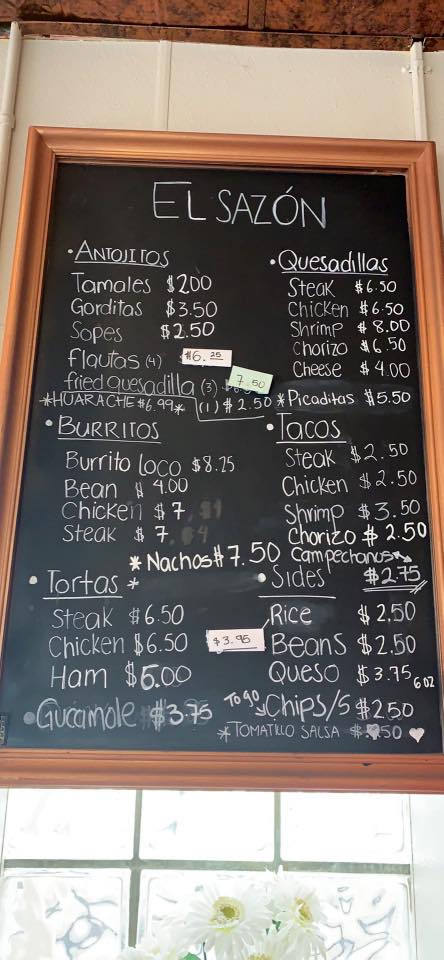 EL SAZÓN
• ANTOJITOS
Tamales $2.00
Gorditas $3.50
Sopes $2.50
Flautas (4) $6.25
fried quesadilla (3) 7.50
*HUARACHE $6.99* (1) $2.50
• BURRITOS
Burrito Loco $8.25
Bean $4.00
Chicken $7
Steak $7
* Nachos $7.50
• Tortas *
Steak $6.50
Chicken $6.50
Ham $5.00
• Gucamole $3.75
• Quesadillas
Steak $6.50
Chicken $6.50
Shrimp $8.00
Chorizo $6.50
Cheese $4.00
* Picaditas $5.50
• Tacos
Steak $2.50
Chicken $2.50
Shrimp $3.50
Chorizo $2.50
Campechanos
$2.75
• Sides
Rice $2.50
$3.95
Beans $2.50
Queso $3.75 6oz
To go Chips/S $2.50
*TOMATILLO SALSA $.50